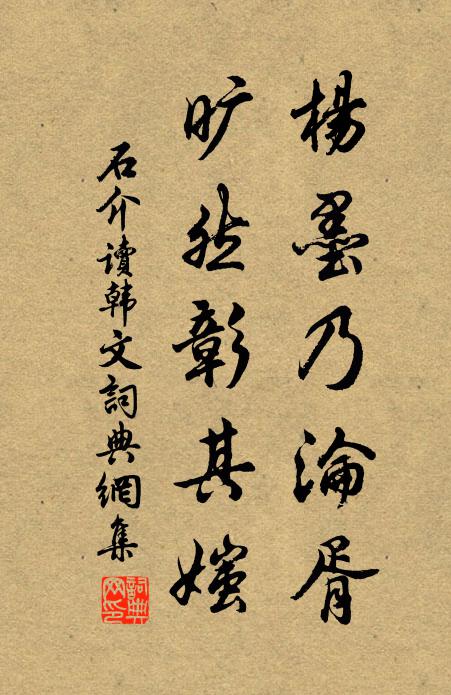 楊墨乃淪胥
旷然彰其媸
石介讀韩文詞典網集
詞典网印